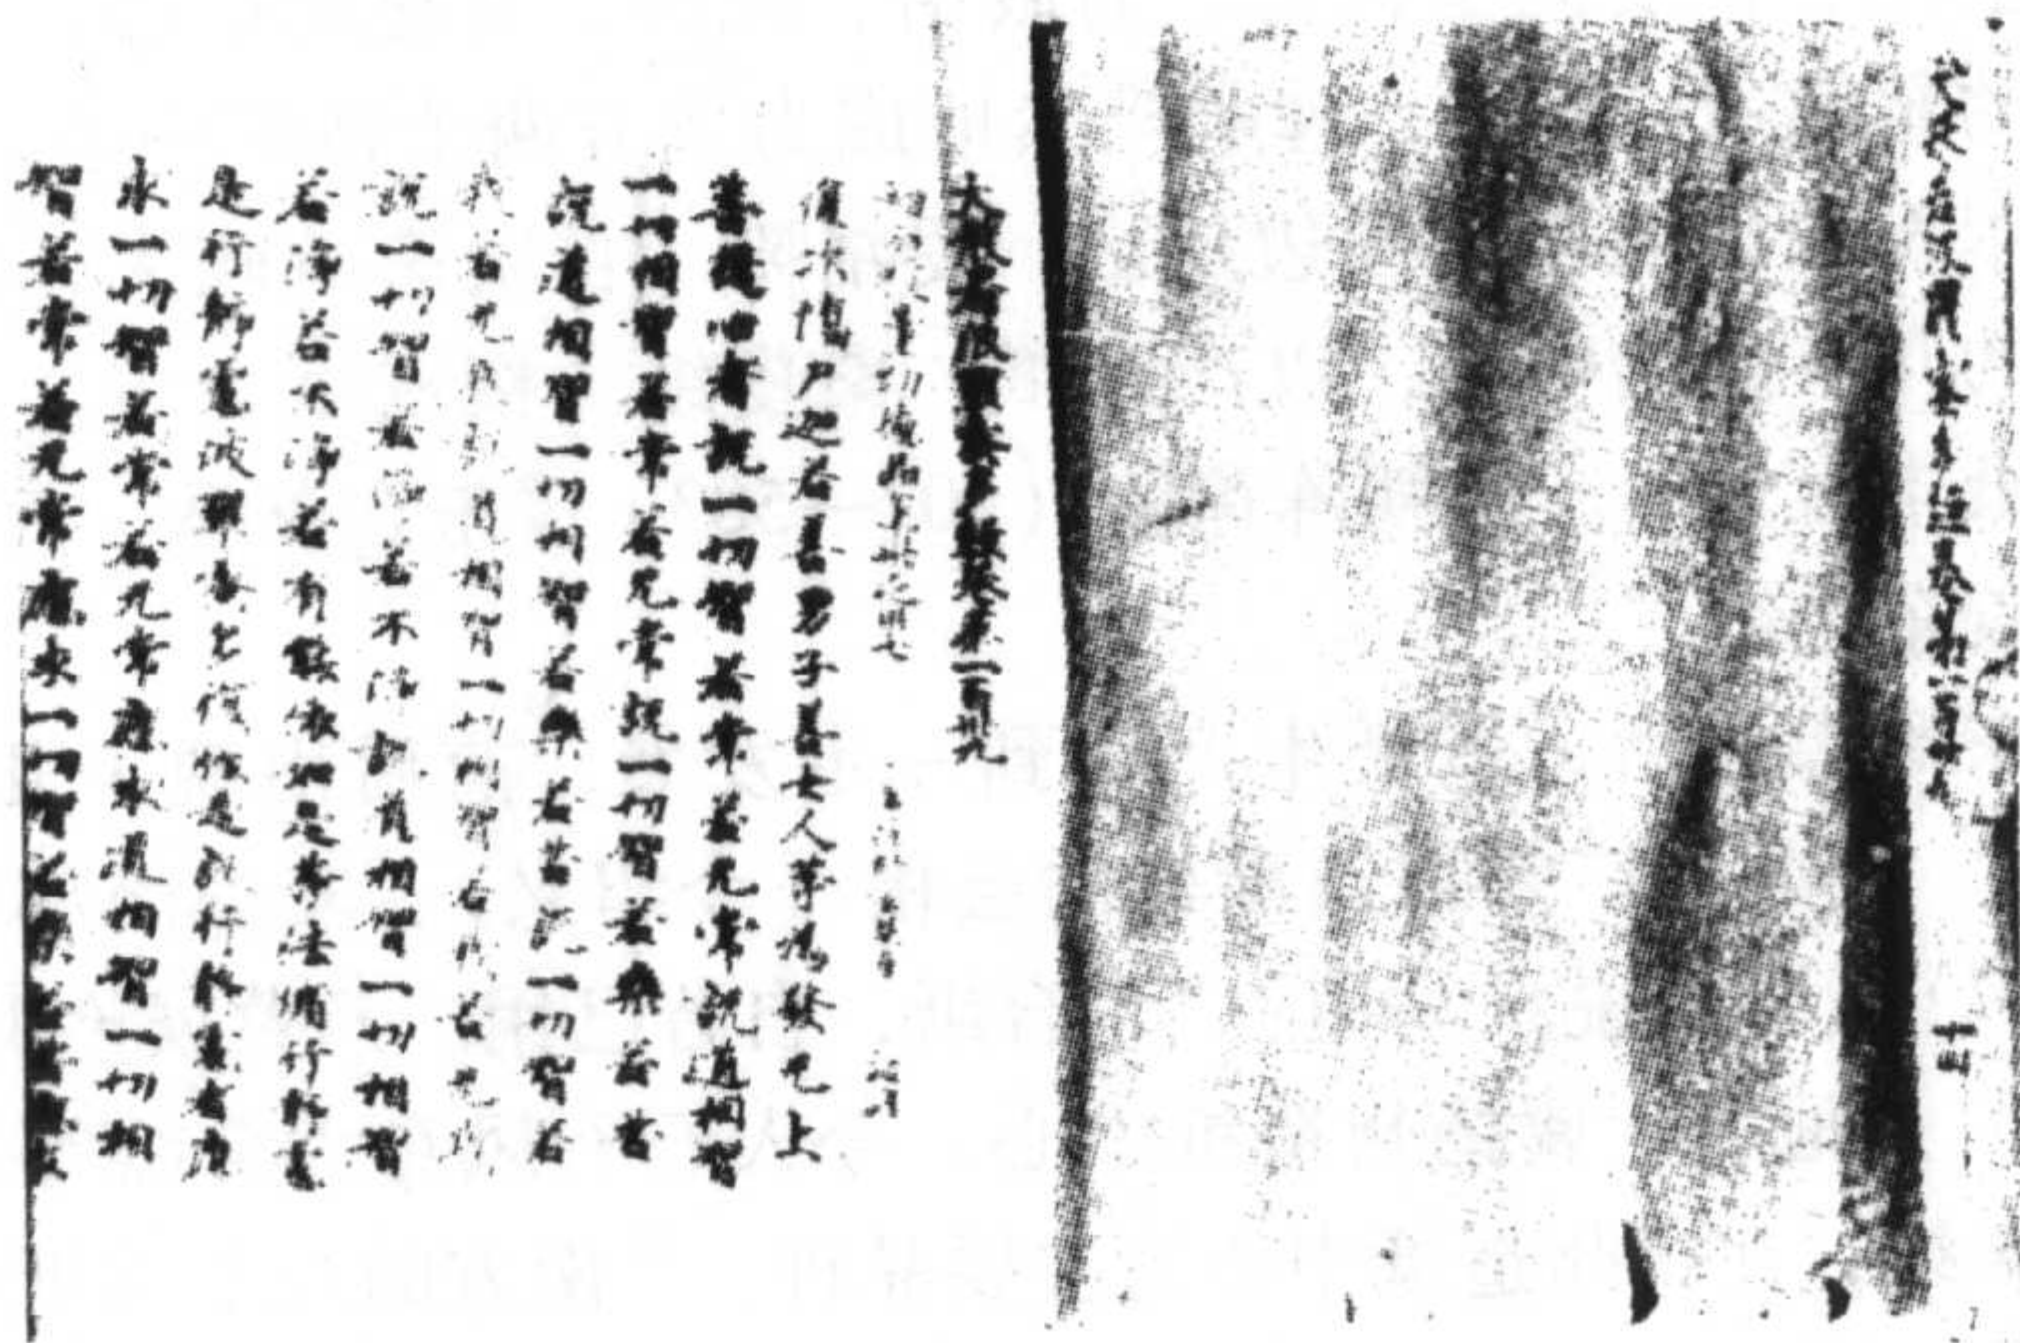 大般若波羅蜜多經卷第一百卅九
十四
大般若波羅蜜多經卷第一百卅九
初分校量功德品第卅之卅七
復次憍尸迦若善男子善女人等為發无上
菩提心者說一切智若常若无常說道相智
一切相智若常若无常說一切智若樂若苦
說道相智一切相智若樂若苦說一切智若
我若无我說道相智一切相智若我若无我
說一切智若淨若不淨說道相智一切相智
若淨若不淨若有能依如是等法修行靜慮
是行靜慮波羅蜜多復作是說行靜慮者應
求一切智若常若无常應求道相智一切相
智若常若无常應求一切智若樂若苦應求